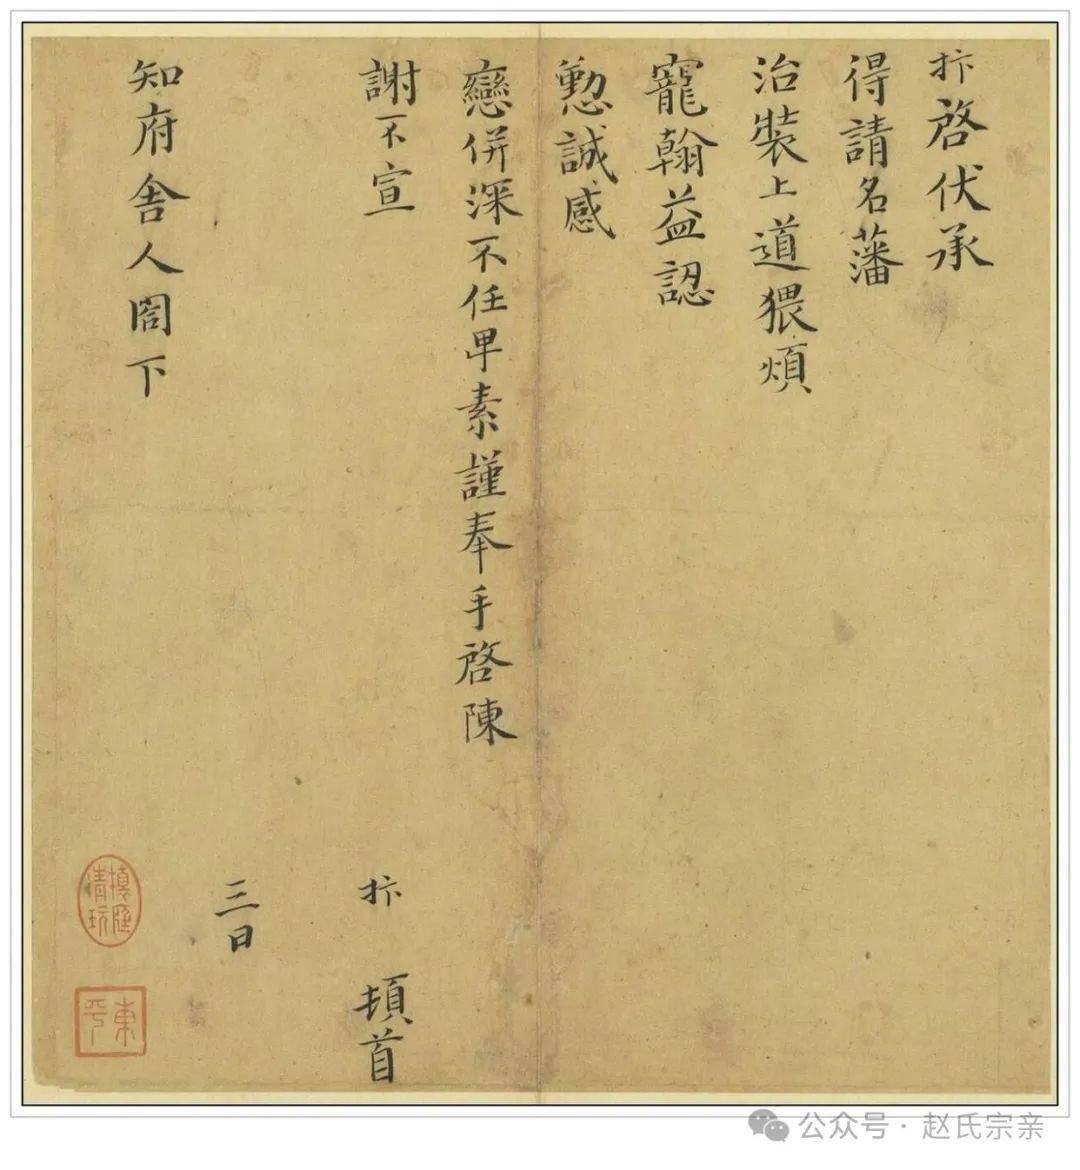 抃啓伏承
得請名藩
治裝上道猥煩
寵翰益認
懃誠感
戀併深不任早素謹奉手啓陳
謝不宣
抃 頓首
三日
知府舍人閤下
清玩
東平
公众号·赵氏宗亲